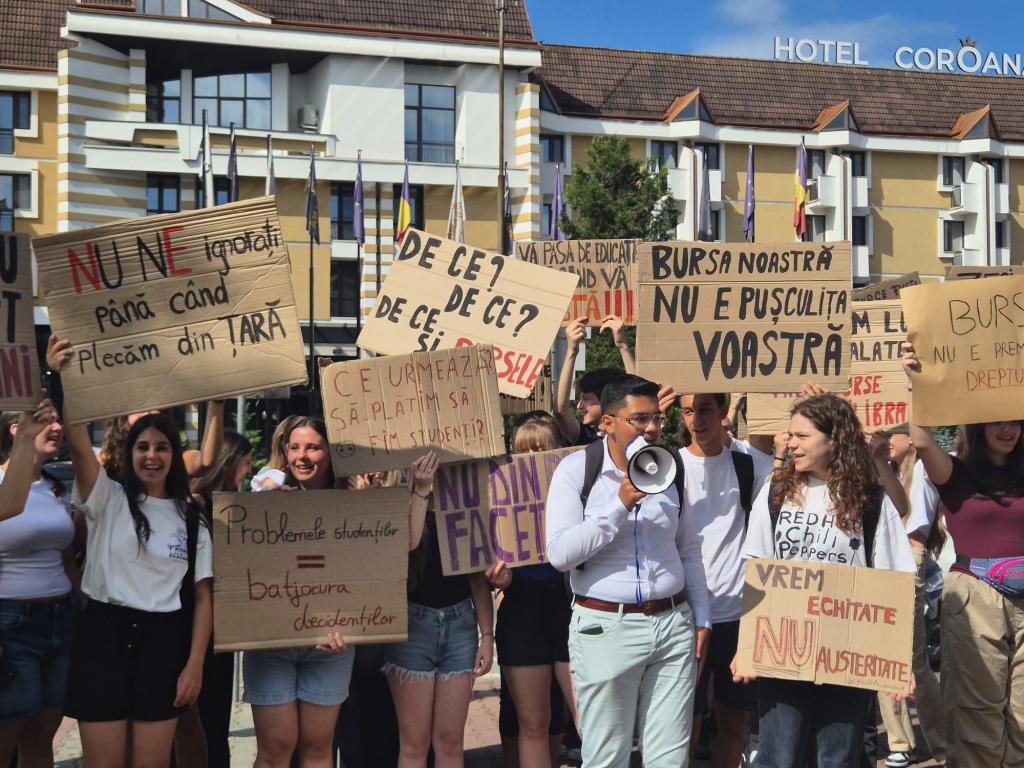 HOTEL COROANA
NU NE ignorați
până când
plecăm din ȚARĂ
DE CE?
DE CE?
DE CE
BURSELE
VĂ PASĂ DE EDUCAȚIE
BURSA NOASTRĂ
NU E PUȘCULIȚA
VOASTRĂ
BURSE
NU E
DREPTU
CE URMEAZĂ
SĂ PLĂTIM SĂ
FIM STUDENȚI?
NU DIN
FACEȚ
Problemele studenților
=
batjocura
decidenților
RED HOT
Chili
Peppers
VREM
ECHITATE
NU AUSTERITATE